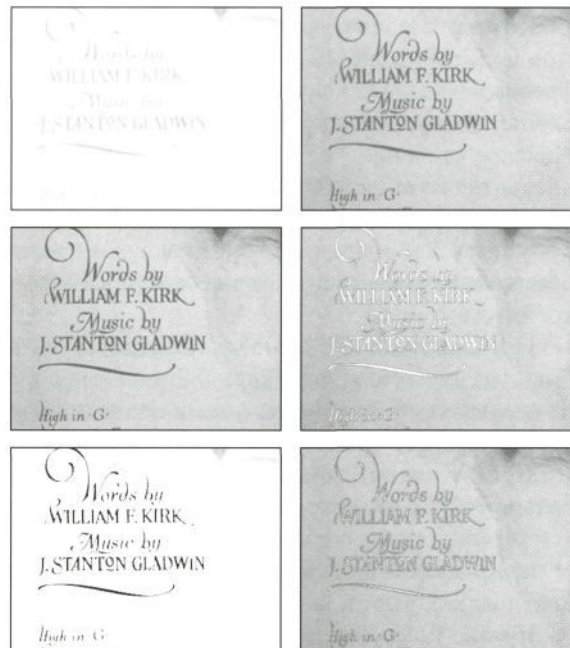 Words by
WILLIAM F. KIRK
Music by
J. STANTON GLADWIN
Words by
WILLIAM F. KIRK
Music by
J. STANTON GLADWIN
High in G
Words by
WILLIAM F. KIRK
Music by
J. STANTON GLADWIN
High in G
Words by
WILLIAM F. KIRK
Music by
J. STANTON GLADWIN
High in G
Words by
WILLIAM F. KIRK
Music by
J. STANTON GLADWIN
High in G
Words by
WILLIAM F. KIRK
Music by
J. STANTON GLADWIN
High in G